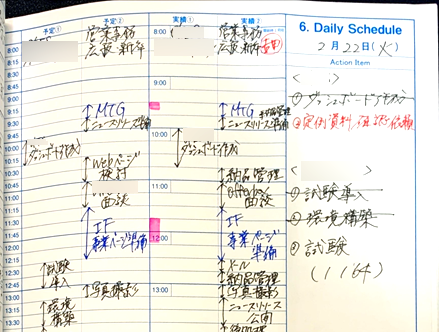 予定① 予定② 実績① 実績②
6. Daily Schedule
2月22日(火)
Action Item
8:00
営業事務
広報・新卒
9:00
9:15
9:30
9:45
10:00
10:15
10:30
10:45
11:00
11:15
11:30
11:45
12:00
12:15
12:45
13:00
13:15
13:30
MTG
ニュースリリース準備
ダッシュボード作成
Webページ
検討
面談
IF
事業ページ準備
試験
導入
写真撮影
環境
構築
8:00
9:00
10:00
11:00
12:00
13:00
営業事務
広報・新卒
MTG
ニュースリリース準備
ダッシュボード作成
納品管理
面談
IF
事業ページ
準備
メール
納品管理
写真撮影
ニュースリリース
公開
① ダッシュボード作成
② 実例資料
① 試験導入
② 環境構築
③ 試験
(1164)